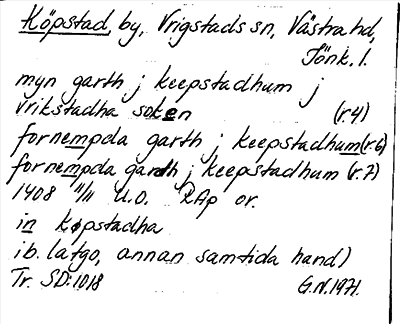 Köpstad, by, Vrigstads sn, Västra hd,
Jönk. l.
myn garth j keepstadhum j
vrikstadha soken (r.4)
fornempda garth j keepstadhum (r.6)
fornempda garth j keepstadhum (r.7)
1408 11/11 U.O. RAp or.
in køpstadha
ib. latgo, annan samtida hand)
Tr. SD:1018 G.N.1971.